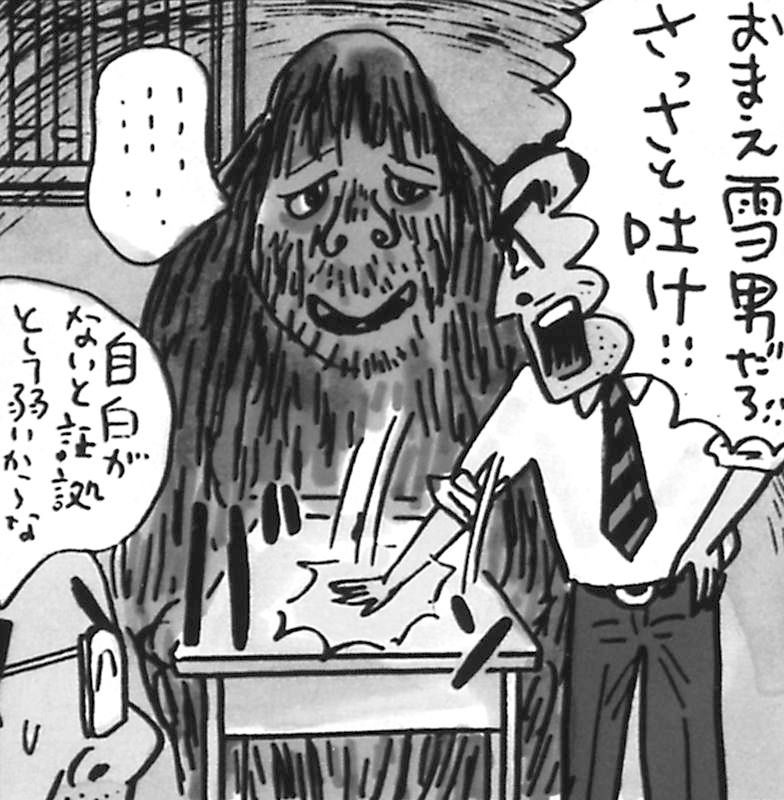 おまえ雪男だろ!!
さっさと
吐け!!
………
自白が
ないと証拠
として弱いからな